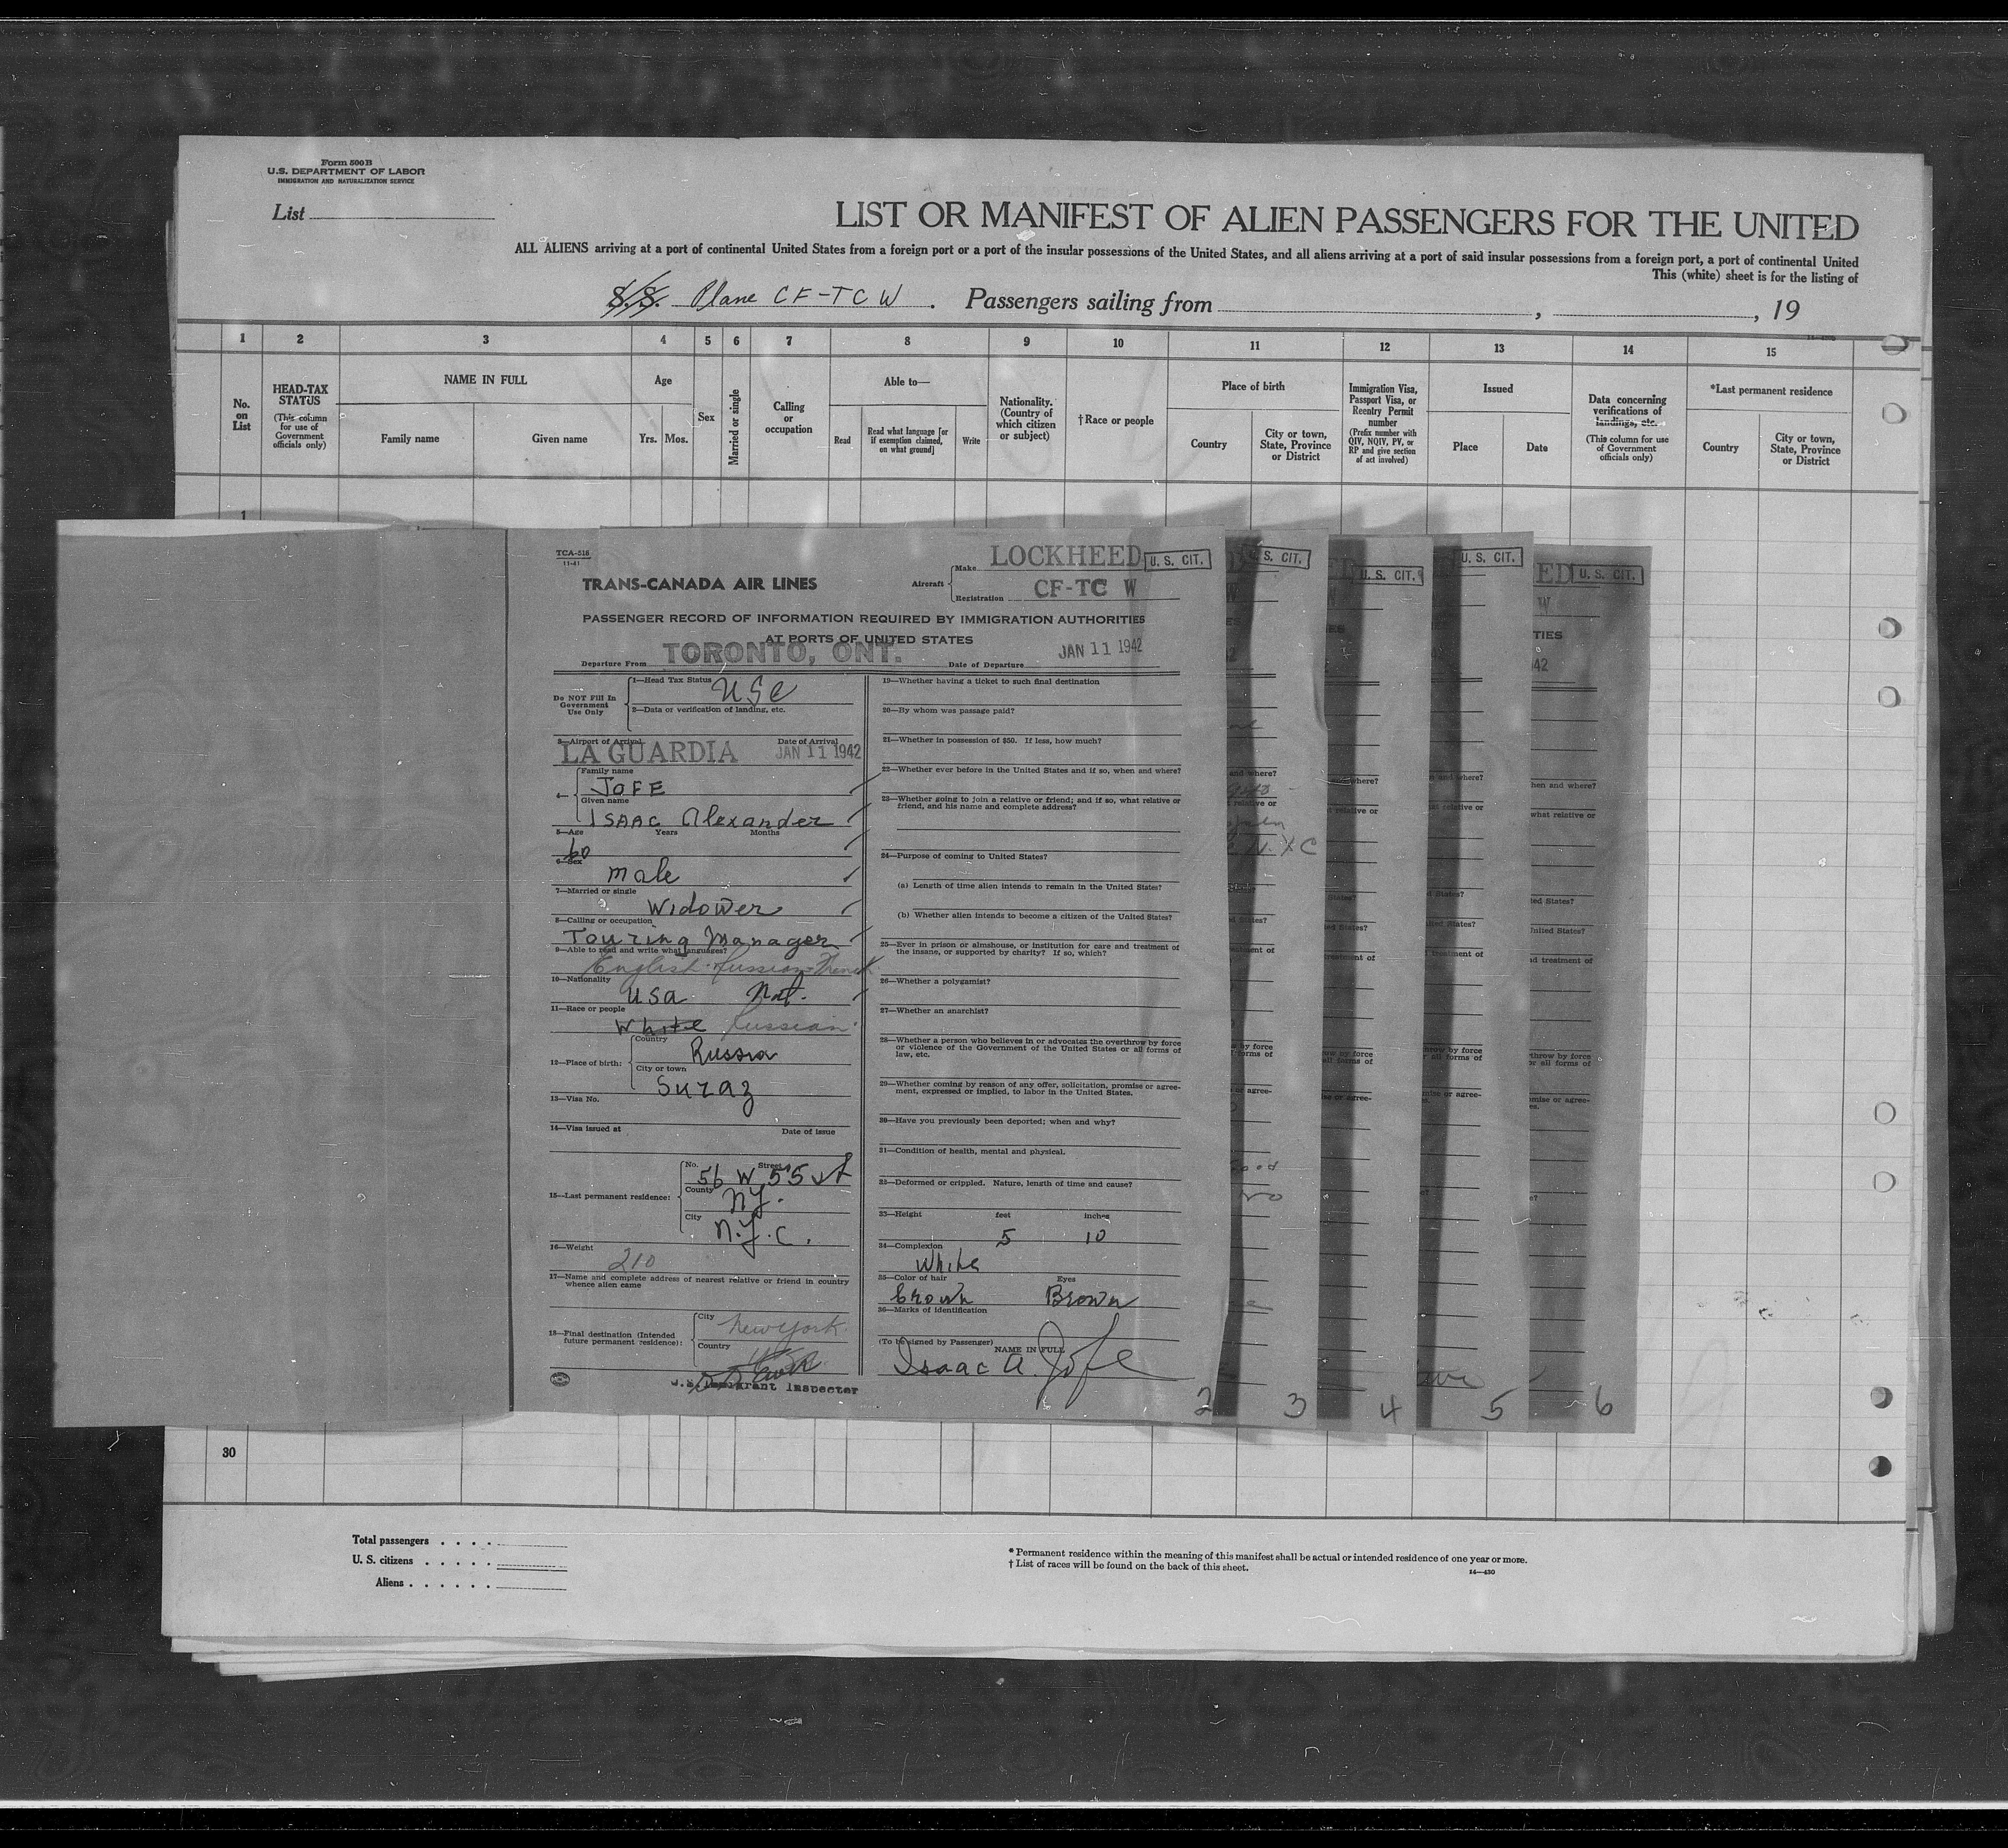 Form 500B
U.S. DEPARTMENT OF LABOR
IMMIGRATION AND NATURALIZATION SERVICE
List
LIST OR MANIFEST OF ALIEN PASSENGERS FOR THE UNITED
ALL ALIENS arriving at a port of continental United States from a foreign port or a port of the insular possessions of the United States, and all aliens arriving at a port of said insular possessions from a foreign port, a port of continental United
This (white) sheet is for the listing of
S.S. Plane CF-TCW. Passengers sailing from , , 19
1 2 3 4 5 6 7 8 9 10 11 12 13 14 15
No. on List
HEAD-TAX STATUS (This column for use of Government officials only)
NAME IN FULL
Family name Given name
Age
Yrs. Mos.
Sex
Married or single
Calling or occupation
Able to—
Read Read what language [or if exemption claimed, on what ground] Write
Nationality. (Country of which citizen or subject)
†Race or people
Place of birth
Country City or town, State, Province or District
Immigration Visa, Passport Visa, or Reentry Permit number (Prefix number with QIV, NQIV, PV, or RP and give section of act involved)
Issued
Place Date
Data concerning verifications of landings, etc. (This column for use of Government officials only)
*Last permanent residence
Country City or town, State, Province or District
1
TCA-518
11-41
TRANS-CANADA AIR LINES
Aircraft Make LOCKHEED U. S. CIT.
Registration CF-TC W
PASSENGER RECORD OF INFORMATION REQUIRED BY IMMIGRATION AUTHORITIES
AT PORTS OF UNITED STATES
Departure From TORONTO, ONT. Date of Departure JAN 11 1942
Do NOT Fill In Government Use Only
1—Head Tax Status USC
2—Data or verification of landing, etc.
3—Airport of Arrival LA GUARDIA Date of Arrival JAN 11 1942
4— Family name JOFE
Given name ISAAC Alexander
5—Age Years Months
60
6—Sex male
7—Married or single
Widower
8—Calling or occupation
Touring Manager
9—Able to read and write what languages?
English-Russian-French
10—Nationality
USA Nat.
11—Race or people
White Russian
12—Place of birth: Country Russia
City or town Suraz
13—Visa No.
14—Visa issued at Date of issue
15—Last permanent residence: No. Street 56 W 55 st
County NY.
City N.Y.C.
16—Weight 210
17—Name and complete address of nearest relative or friend in country whence alien came
18—Final destination (Intended future permanent residence): City New York
Country
U.S. Immigrant Inspector
19—Whether having a ticket to such final destination
20—By whom was passage paid?
21—Whether in possession of $50. If less, how much?
22—Whether ever before in the United States and if so, when and where?
23—Whether going to join a relative or friend; and if so, what relative or
friend, and his name and complete address?
24—Purpose of coming to United States?
(a) Length of time alien intends to remain in the United States?
(b) Whether alien intends to become a citizen of the United States?
25—Ever in prison or almshouse, or institution for care and treatment of
the insane, or supported by charity? If so, which?
26—Whether a polygamist?
27—Whether an anarchist?
28—Whether a person who believes in or advocates the overthrow by force
or violence of the Government of the United States or all forms of
law, etc.
29—Whether coming by reason of any offer, solicitation, promise or agree-
ment, expressed or implied, to labor in the United States.
30—Have you previously been deported; when and why?
31—Condition of health, mental and physical.
32—Deformed or crippled. Nature, length of time and cause?
33—Height feet inches
5 10
34—Complexion
White
35—Color of hair Eyes
brown Brown
36—Marks of identification
(To be signed by Passenger) NAME IN FULL
Isaac A. Jofe
2 3 4 5 6
U. S. CIT.
U. S. CIT.
U. S. CIT.
30
Total passengers . . . .
U. S. citizens . . . . .
Aliens . . . . . .
* Permanent residence within the meaning of this manifest shall be actual or intended residence of one year or more.
† List of races will be found on the back of this sheet.
14—430